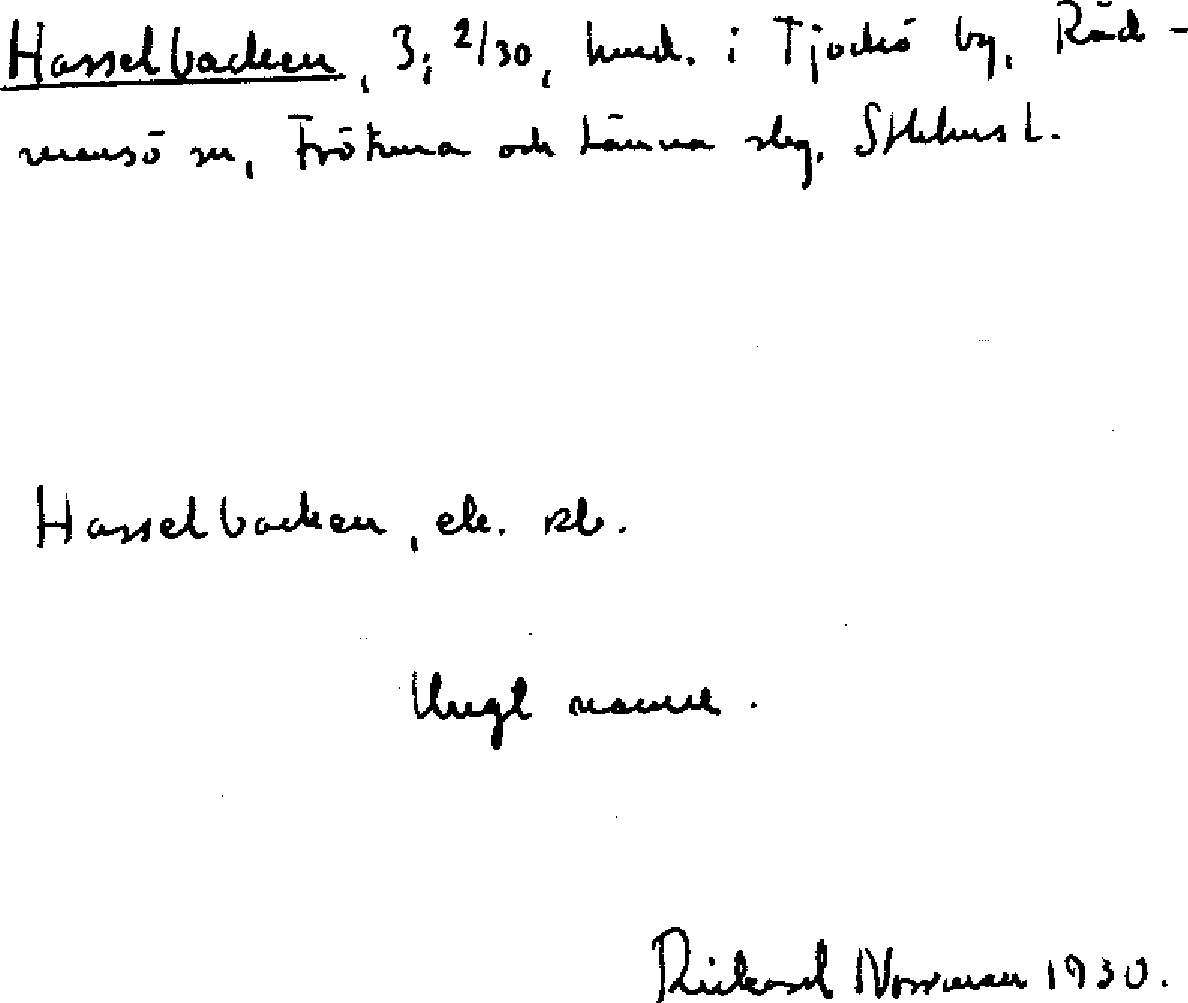 Hasselbacken, 3; 2/30, hmd. i Tjockö by, Råd-
mansö sn, Frötuna och Länna skg, Sthlms l.
Hasselbacken, ek. kb.
Ungt namn.
Rickard Norrman 1930.